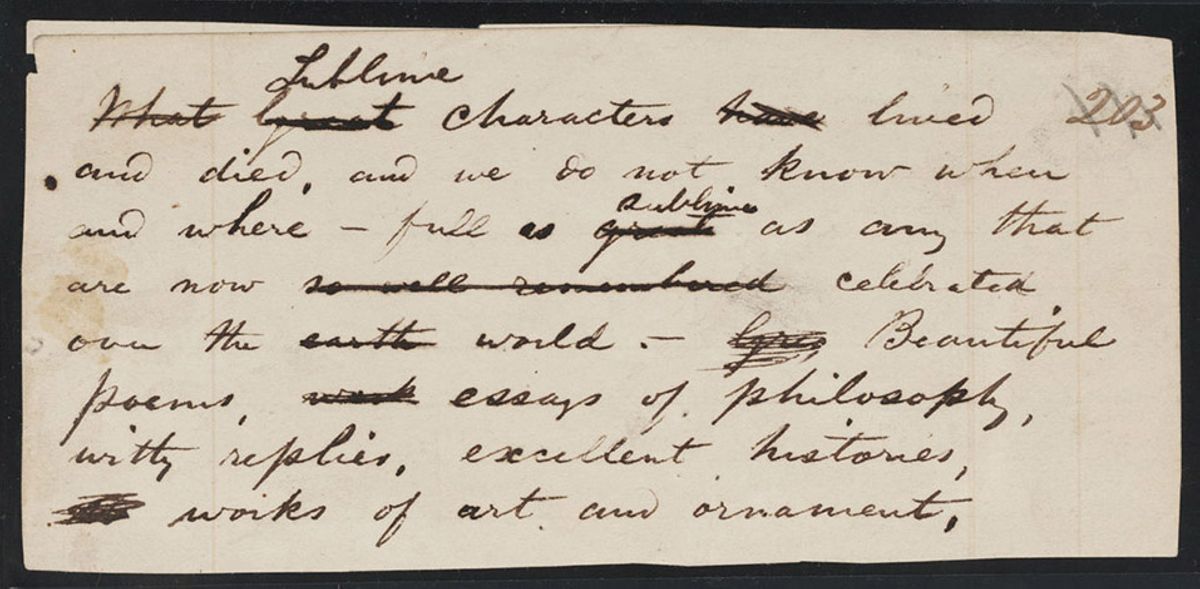 Sublime
What great characters have lived 203
and died, and we do not know when
sublime
and where – full as great as any that
are now so well remembered celebrated
over the earth world. – Beautiful
poems, work essays of philosophy,
witty replies, excellent histories,
works of art and ornament,